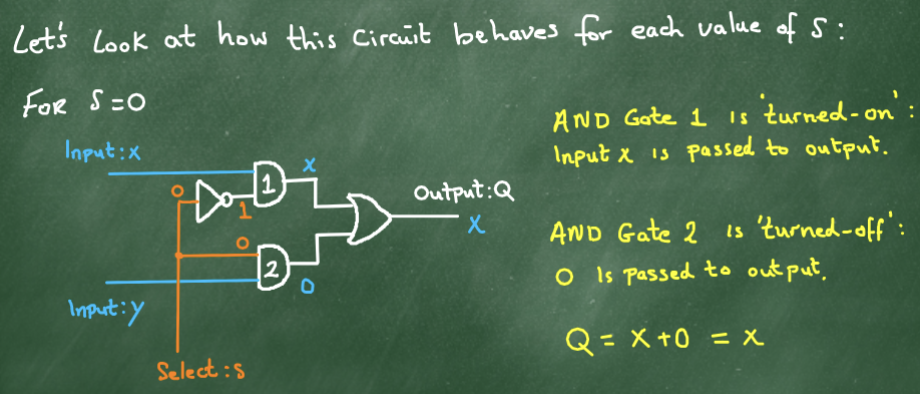 Let's Look at how this Circuit behaves for each value of S:
FOR S=0
Input:x
0
1
1
x
0
2
0
Input:y
Select:s
Output:Q
x
AND Gate 1 is 'turned-on':
Input x is passed to output.
AND Gate 2 is 'turned-off':
0 Is passed to output.
Q = X+0 = x